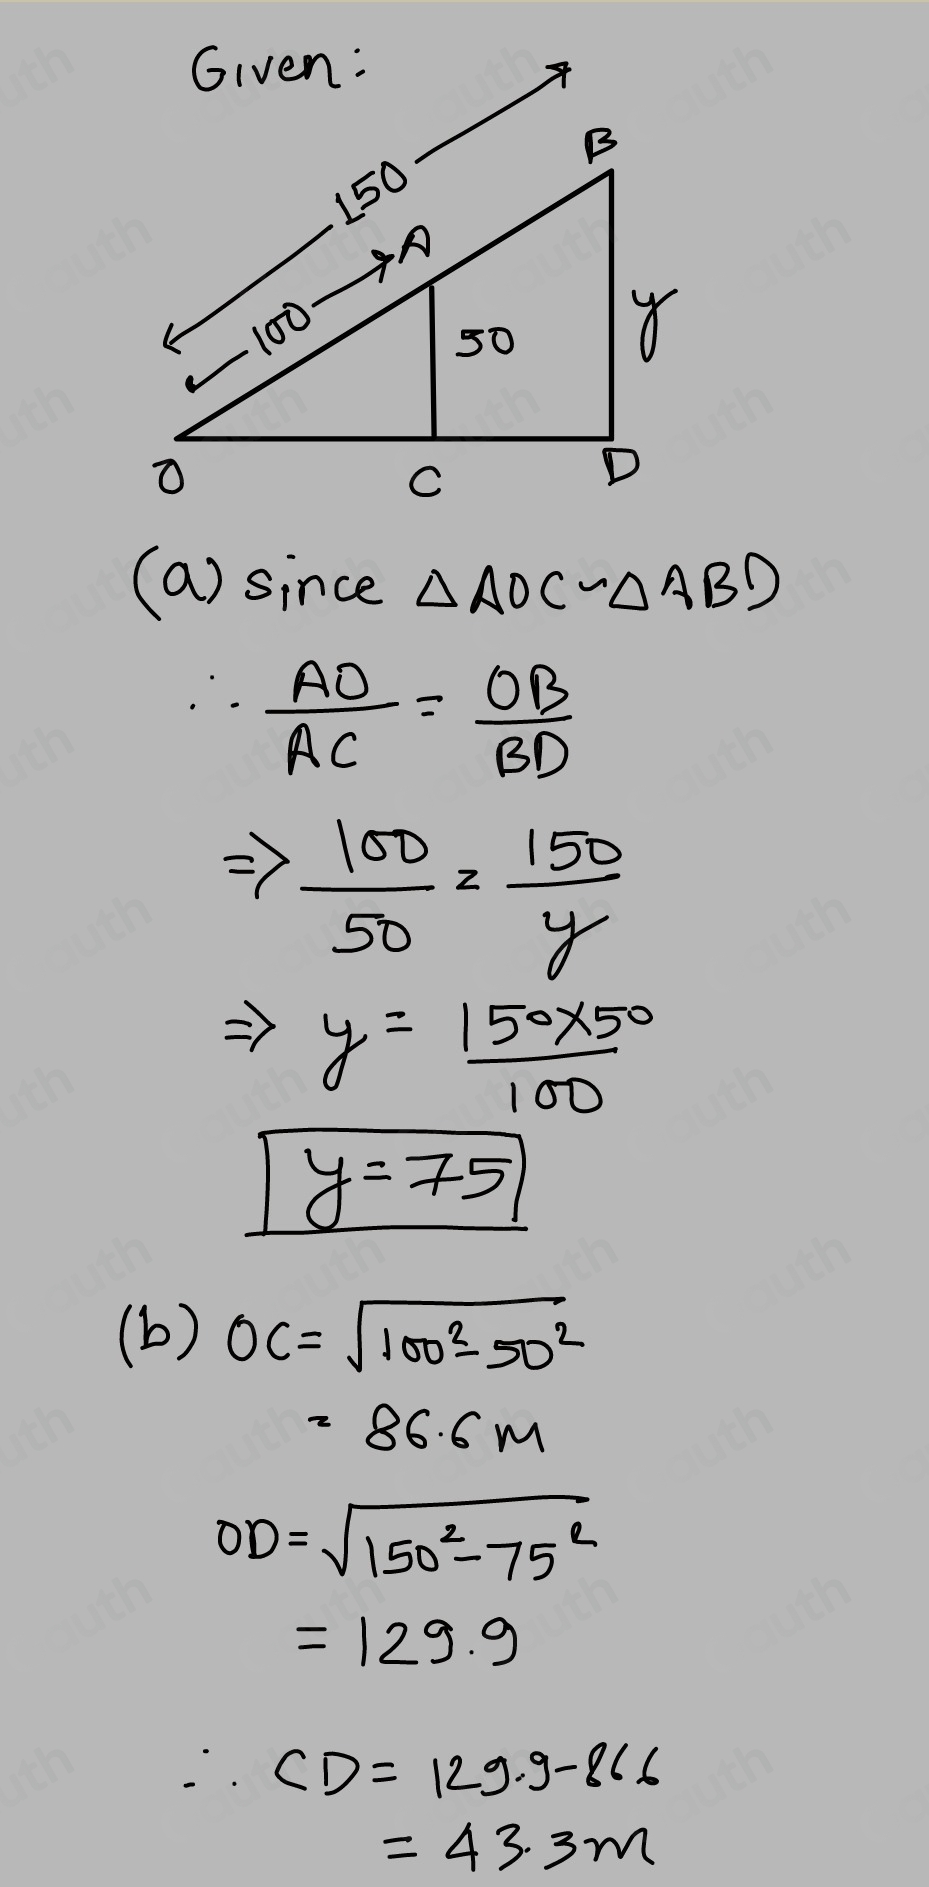 Given:
150
B
A
100
50
y
O
C
D
(a) since △AOC~△ABD
∴ AO/AC = OB/BD
⇒ 100/50 = 150/y
⇒ y = 150×50/100
y=75
(b) OC= √100²-50²
= 86.6m
OD= √150²-75²
= 129.9
∴ CD= 129.9-866
= 43.3m